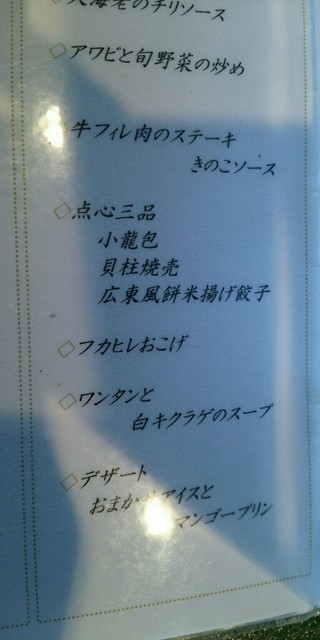 大海老のチリソース
◇アワビと旬野菜の炒め
牛フィレ肉のステーキ
きのこソース
◇点心三品
小龍包
貝柱焼売
広東風餅米揚げ餃子
◇フカヒレおこげ
◇ワンタンと
白キクラゲのスープ
◇デザート
おまかせアイスと
マンゴープリン